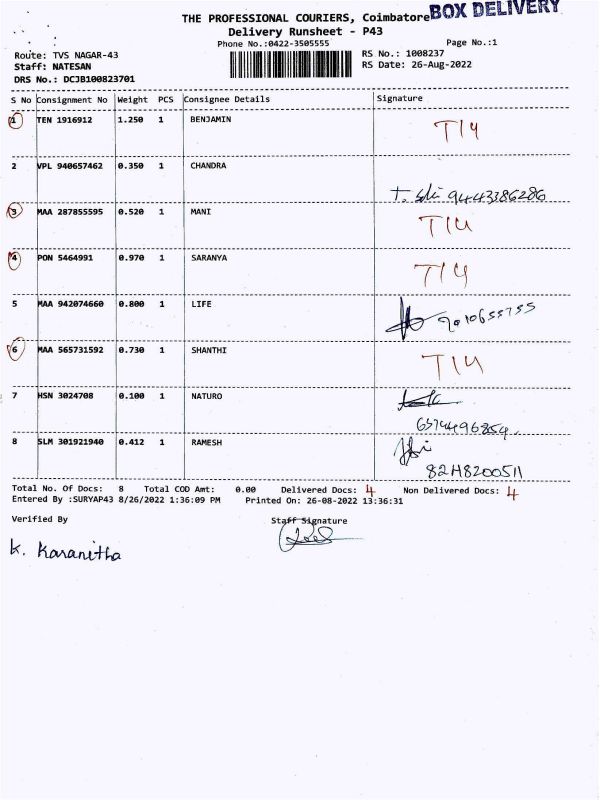 BOX DELIVERY
THE PROFESSIONAL COURIERS, Coimbatore
Delivery Runsheet - P43
Phone No.:0422-3505555 Page No.:1
Route: TVS NAGAR-43 RS No.: 1008237
Staff: NATESAN RS Date: 26-Aug-2022
DRS No.: DCJB100823701
S No Consignment No Weight PCS Consignee Details Signature
1 TEN 1916912 1.250 1 BENJAMIN T14
2 VPL 940657462 0.350 1 CHANDRA
9443386286
3 MAA 287855595 0.520 1 MANI T14
4 PON 5464991 0.970 1 SARANYA T14
5 MAA 942074660 0.800 1 LIFE
6 MAA 565731592 0.730 1 SHANTHI T14
7 HSN 3024708 0.100 1 NATURO
6374496854
8 SLM 301921940 0.412 1 RAMESH
Total No. Of Docs: 8 Total COD Amt: 0.00 Delivered Docs: 4 Non Delivered Docs: 4
Entered By :SURYAP43 8/26/2022 1:36:09 PM Printed On: 26-08-2022 13:36:31
Verified By Staff Signature
K. Karanitha